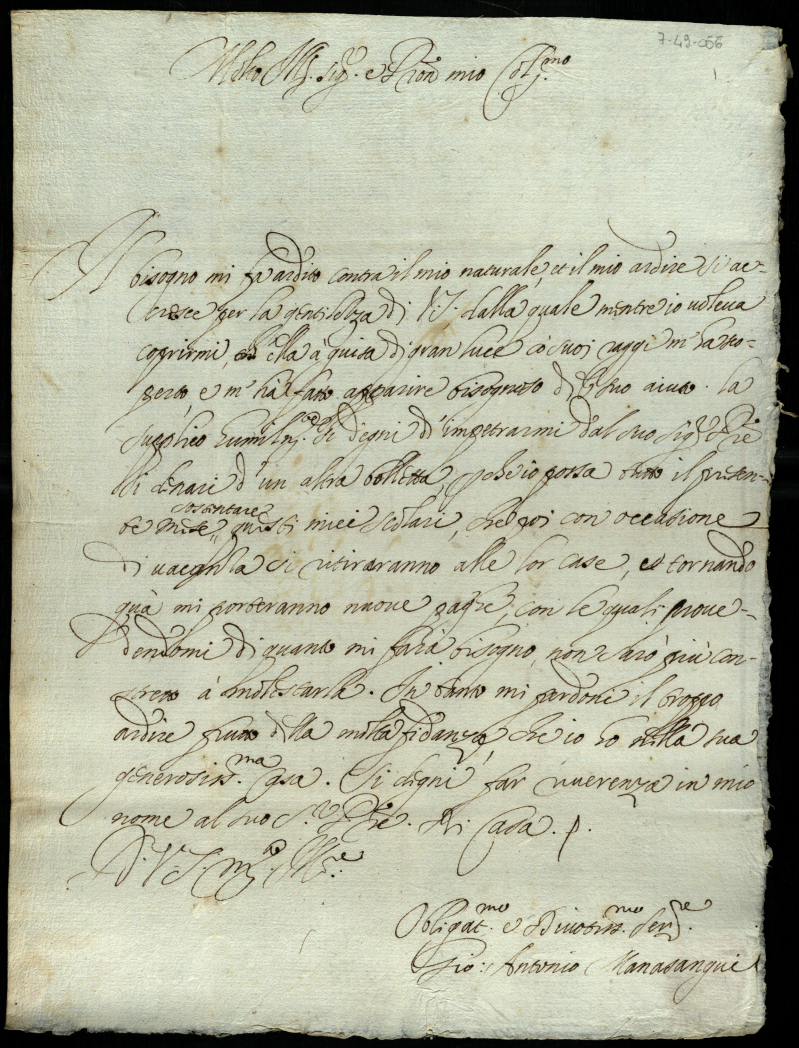 7-49-066
Molto Ill. Sig.r e Pron mio Col.mo
Il bisogno mi fa ardito contra il mio naturale, et il mio ardire si ac-
cresce per la gentilezza di V.S. dalla quale mentre io voleva
coprirmi, ella à guisa di gran luce co' suoi raggi m'ha sco-
perto, e m'hà fatto apparire bisognoso del suo aiuto. la
supplico humilm.te si degni d'impetrarmi dal suo Sig.r Pre
li denari d'un altra bolletta, perche io possa tutto il presen-
te mese sostentare questi miei scolari, che poi con occasione
di vacanza si ritiraranno alle lor case, et tornando
quà mi porteranno nuove paghe, con le quali prove-
dendomi di quanto mi farà bisogno, non sarò più con-
stretto à molestarla. In tanto mi perdoni il troppo
ardire frutto della molta fidanza, che io hò nella sua
generosiss.ma casa. Si degni far riverenza in mio
nome al suo S.r Pre. Di Casa.
D. V.S. m.to Ill.re
Obligat.mo e Divotiss.mo Ser.re
Gio: Antonio Manasangue